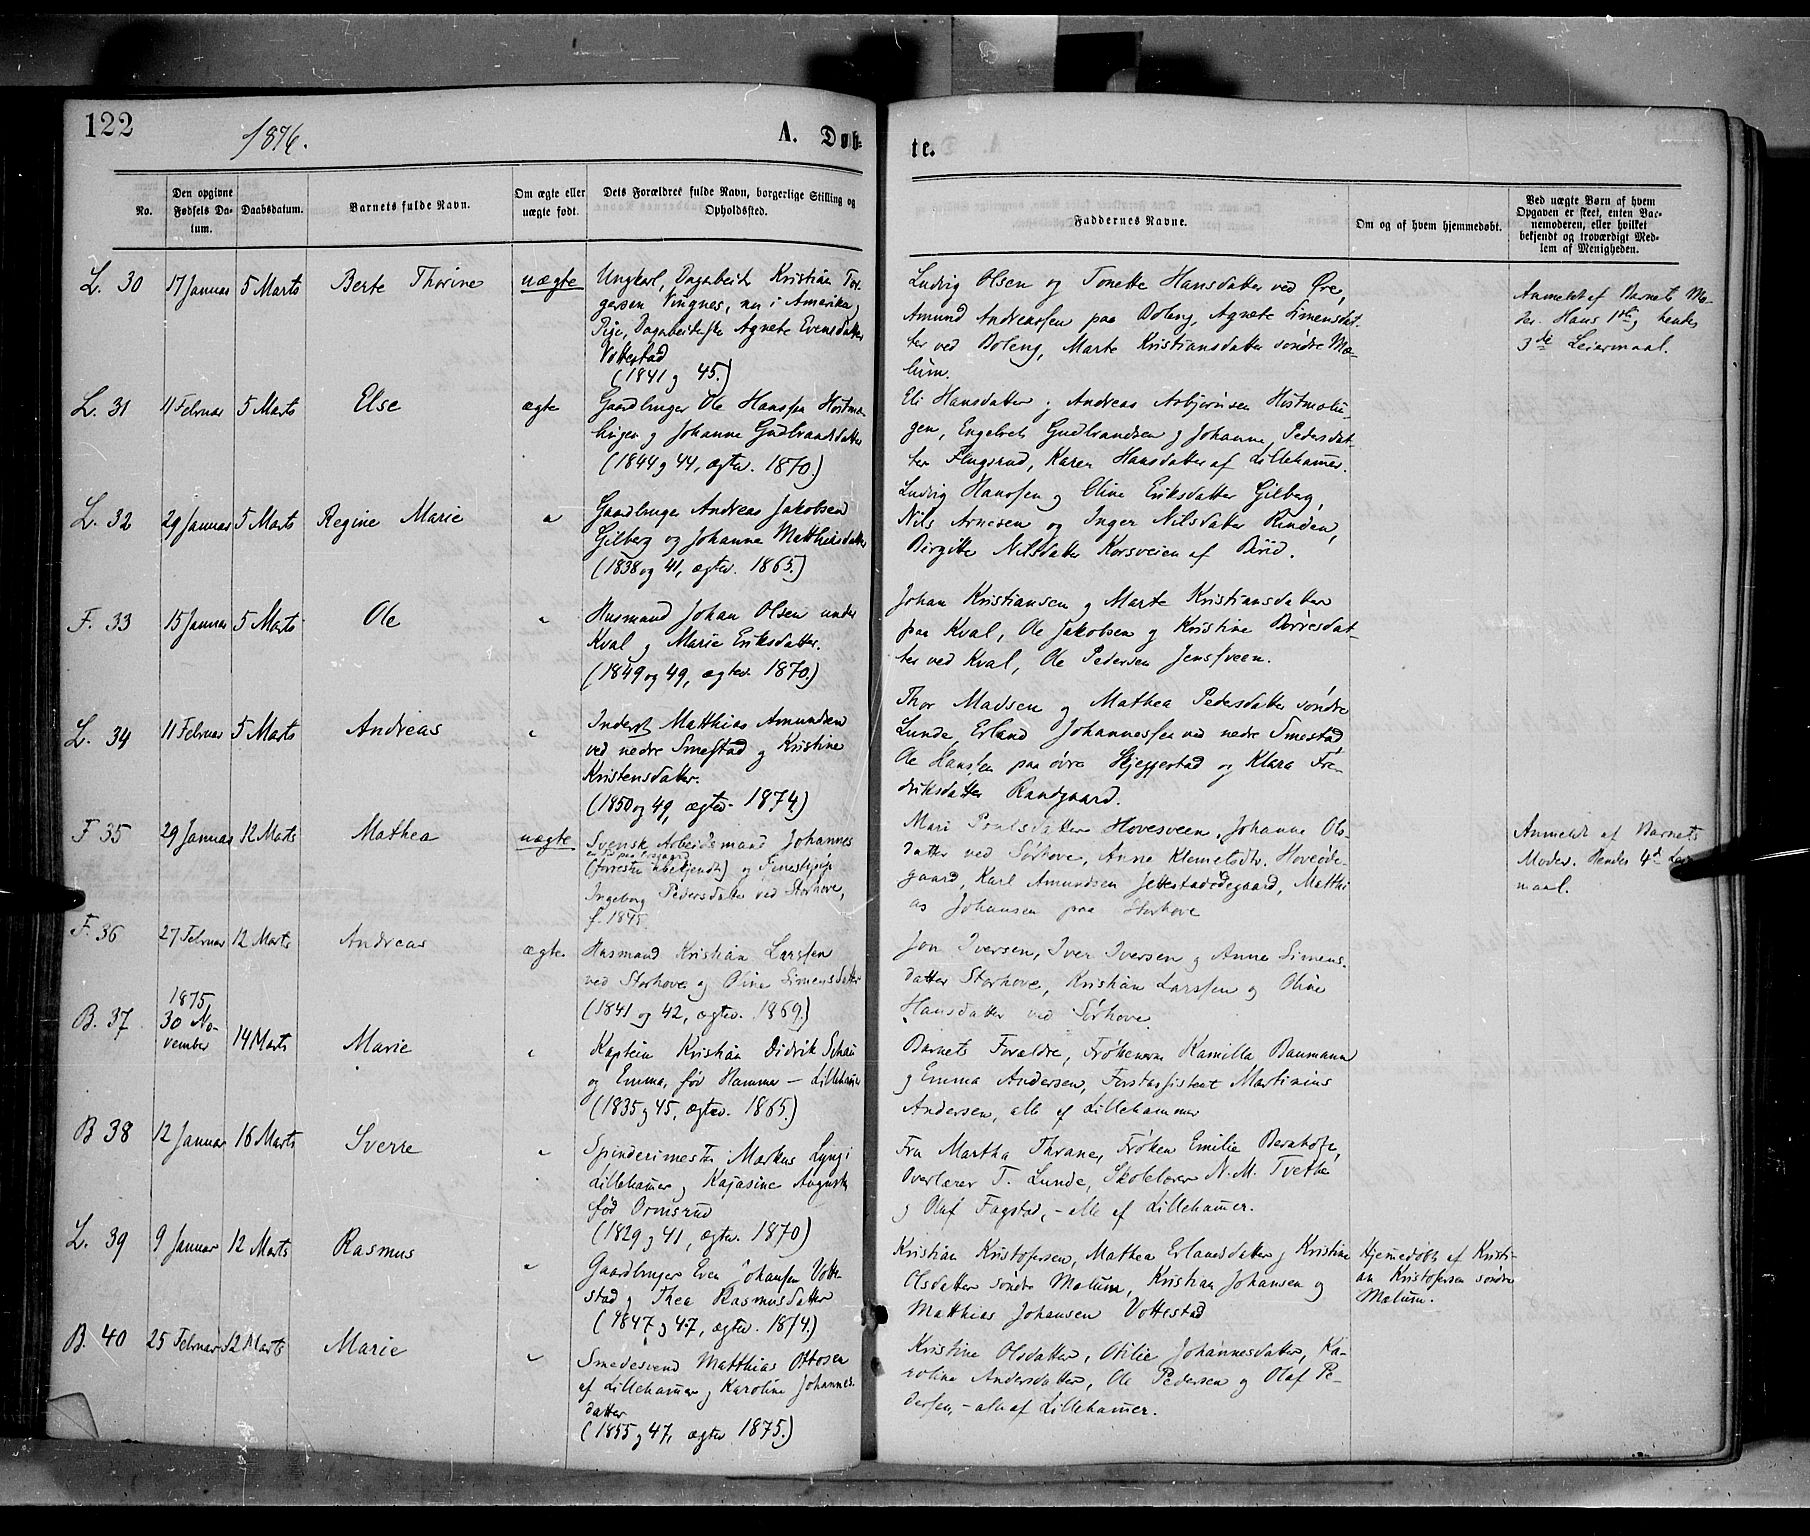 122
1876.
A. Døb-
te.
No.
Den opgivne Fødsels Da-
tum.
Daabsdatum.
Barnets fulde Navn.
Om ægte eller
uægte født.
Dets Forældres fulde Navn, borgerlige Stilling og
Opholdssted.
Faddernes Navne.
Om og af hvem hjemmedøbt.
Ved uægte Børn af hvem
Opgaven er skeet, enten Bar-
nemoderen, eller hvilket
bekjendt og troværdigt Med-
lem af Menigheden.
L. 30
17 Januar
5 Marts
Berte Thorine
uægte
Ungkarl, Dagarbeider Kristian Tor-
gersen Vingnes, nu i Amerika,
Pige, Dagarbeiderske Agnete Evensdatter
Vottestad
(1841 og 45.)
Ludvig Olsen og Tonette Hansdatter ved Øre,
Amund Andreassen paa Boleng, Agnete Simensdat-
ter ved Boleng, Marte Kristiansdatter søndre Mæ-
lum.
Anmeldt af Barnets Mo-
der. Hans 1ste, hendes
3de Leiermaal.
L. 31
11 Februar
5 Marts
Else
ægte
Gaardbruger Ole Hanssen Hostmæ-
lingen og Johanne Gudbrandsdatter
(1844 og 44, ægtev. 1870.)
Eli Hansdatter og Andreas Asbjørnsen Hostmælin-
gen, Engebret Gudbrandsen og Johanne Pedersdat-
ter Flugsrud, Karen Hansdatter af Lillehammer.
L. 32
29 Januar
5 Marts
Regine Marie
"
Gaardbruger Andreas Jakobsen
Gilberg og Johanne Matthiasdatter
(1838 og 41, ægtev. 1865.)
Ludvig Hanssen og Oline Eriksdatter Gilberg,
Nils Arnesen og Inger Nilsdatter Rinden,
Birgitte Nilsdatter Korsveien af Birid.
F. 33
15 Januar
5 Marts
Ole
"
Husmand Johan Olsen under
Kval og Marie Eriksdatter.
(1849 og 49, ægtev. 1870.)
Johan Kristiansen og Marte Kristiansdatter
paa Kval, Ole Jakobsen og Kristine Børresdat-
ter ved Kval, Ole Pedersen Jensveen.
L. 34
11 Februar
5 Marts
Andreas
"
Inderst Matthias Amundsen
ved nedre Smestad og Kristine
Kristensdatter.
(1850 og 49, ægtev. 1874)
Thor Madsen og Mathea Pedersdatter søndre
Lunde, Erland Johannessen ved nedre Smestad
Ole Hanssen paa øvre Skjeggestad og Klara Fre-
driksdatter Randgaard.
F 35
29 Januar
12 Marts
Mathea
uægte
Svensk Arbeidsmand Johannes
(forresten ubekjendt) og Tjenestepige
Ingeborg Pedersdatter ved Storhove,
f. 1848.
Mari Poulsdatter Hovesveen, Johanne Ols-
datter ved Sørhove, Anne Klemetsdtr. Hoveøde-
gaard, Karl Amundsen Jettestadødegaard, Matthi-
as Johansen paa Storhove
Anmeldt af Barnets
Moder. Hendes 4de Leier-
maal.
F. 36
27 Februar
12 Marts
Andreas
ægte
Husmand Kristian Larssen
ved Storhove og Oline Simensdatter
(1841 og 42, ægtev. 1869.)
Jon Iversen, Iver Iversen og Anne Simens-
datter Storhove, Kristian Larssen og Oline
Hansdatter ved Sørhove.
B. 37
1875,
30 No-
vember
14 Marts
Marie
"
Kaptein Kristian Didrik Schau
og Emma, før Hammer – Lillehammer
(1835 og 45, ægtev. 1865.)
Barnets Forældre, Frøknerne Kamilla Baumann
og Emma Andersen, Forstassistent Martinius
Andersen, alle af Lillehammer
B 38
12 Januar
16 Marts
Sverre
"
Spinderimester Markus Lyng i
Lillehammer og Kajasine Augusta
fød Ormsrud
(1829 og 41, ægtev. 1870)
Fru Martha Thrane, Frøken Emilie Bernhoft,
Overlærer T. Lunde, Skolelærer N. M. Tvethe
og Olaf Fagstad, – alle af Lillehammer.
L. 39
9 Januar
12 Marts
Rasmus
"
Gaardbruger Even Johansen Votte-
stad og Thea Rasmusdatter
(1847 og 47, ægtev. 1874.)
Kristian Kristofersen, Mathea Erlandsdatter og Kristine
Olsdatter søndre Mælum, Kristian Johansen og
Matthias Johansen Vottestad
Hjemmedøbt af Kristi-
an Kristofersen søndre
Mælum.
B. 40
25 Februar
12 Marts
Marie
"
Smedesvend Matthias Ottosen
af Lillehammer og Karoline Johannes-
datter
(1855 og 47, ægtev 1875.)
Kristine Olsdatter, Otilie Johannesdatter, Ka-
roline Andersdatter, Ole Pedersen og Olaf Pe-
dersen, – alle af Lillehammer.